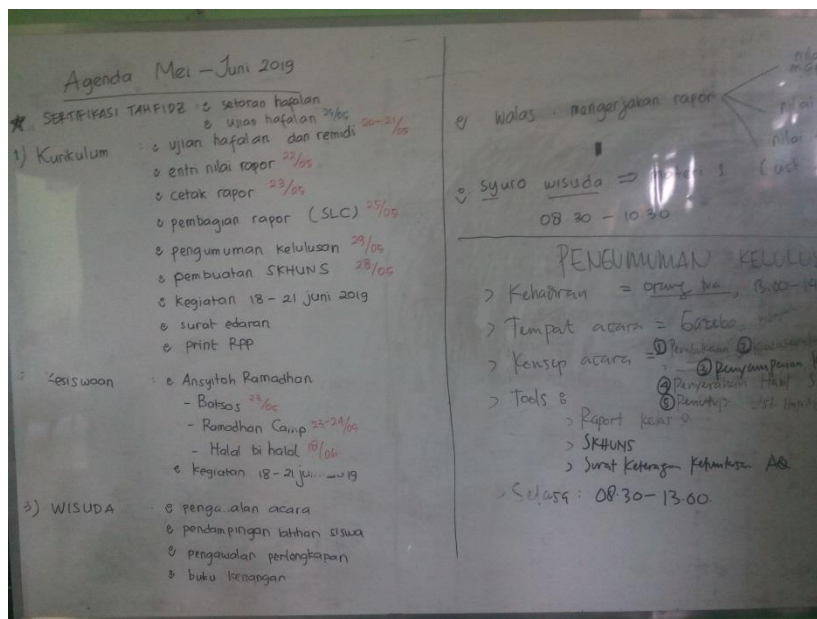 Agenda Mei - Juni 2019
SERTIFIKASI TAHFIDZ : setoran hafalan
ujian hafalan
1) Kurikulum : ujian hafalan dan remidi 20-21/05
entri nilai rapor 22/05
cetak rapor 23/05
pembagian rapor (SLC) 25/05
pengumuman kelulusan 29/05
pembuatan SKHUNS 28/05
kegiatan 18 - 21 juni 2019
surat edaran
print RPP
: Ansyitoh Ramadhan
- Baksos
- Ramadhan Camp 23-24/05
- Halal bi halal 18/06
kegiatan 18 - 21
3) WISUDA
acara
pendampingan latihan siswa
pengawalan perlengkapan
buku kenangan
walas : mengerjakan rapor
nilai
syuro wisuda =>
08.30 - 10.30
PENGUMUMAN
> Kehadiran = orang tua,
> Tempat acara = Gazebo
> Konsep acara = ① Pembukaan ②
③ Penyampaian
④ Penyerahan
⑤ Penutup
> Tools :
> Raport kelas 9
> SKHUNS
> Surat Keterangan Ketuntasan AQ
> Selasa : 08.30 - 13.00